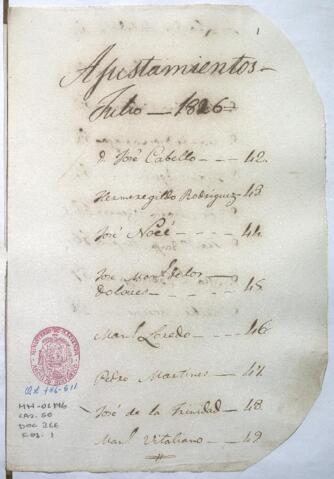 1
Ajustamientos
Julio — 1826
D. José Cabello - - - 42.
Hermenegildo Rodriguez - 43
José Noéé - - - - 44.
Jose Man.l de los
Dolores - - - - 45
Man.l Loredo - - - 46
Pedro Martines - - 47
José de la Trinidad - 48.
Man.l Vitaliano - - 49
MM-02 
CAJ. 50
DOC 266
FOJ. 1